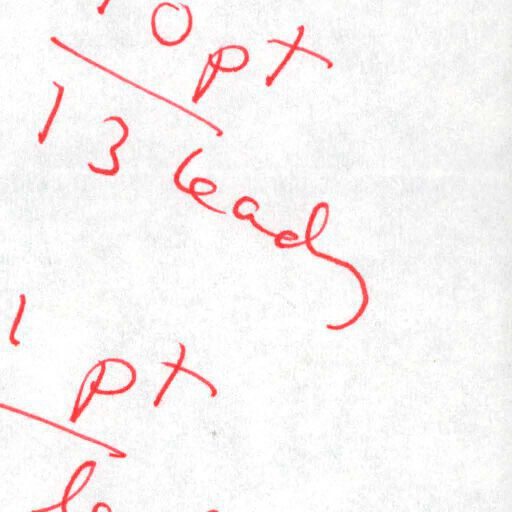 10 pt
13 lead
1 pt